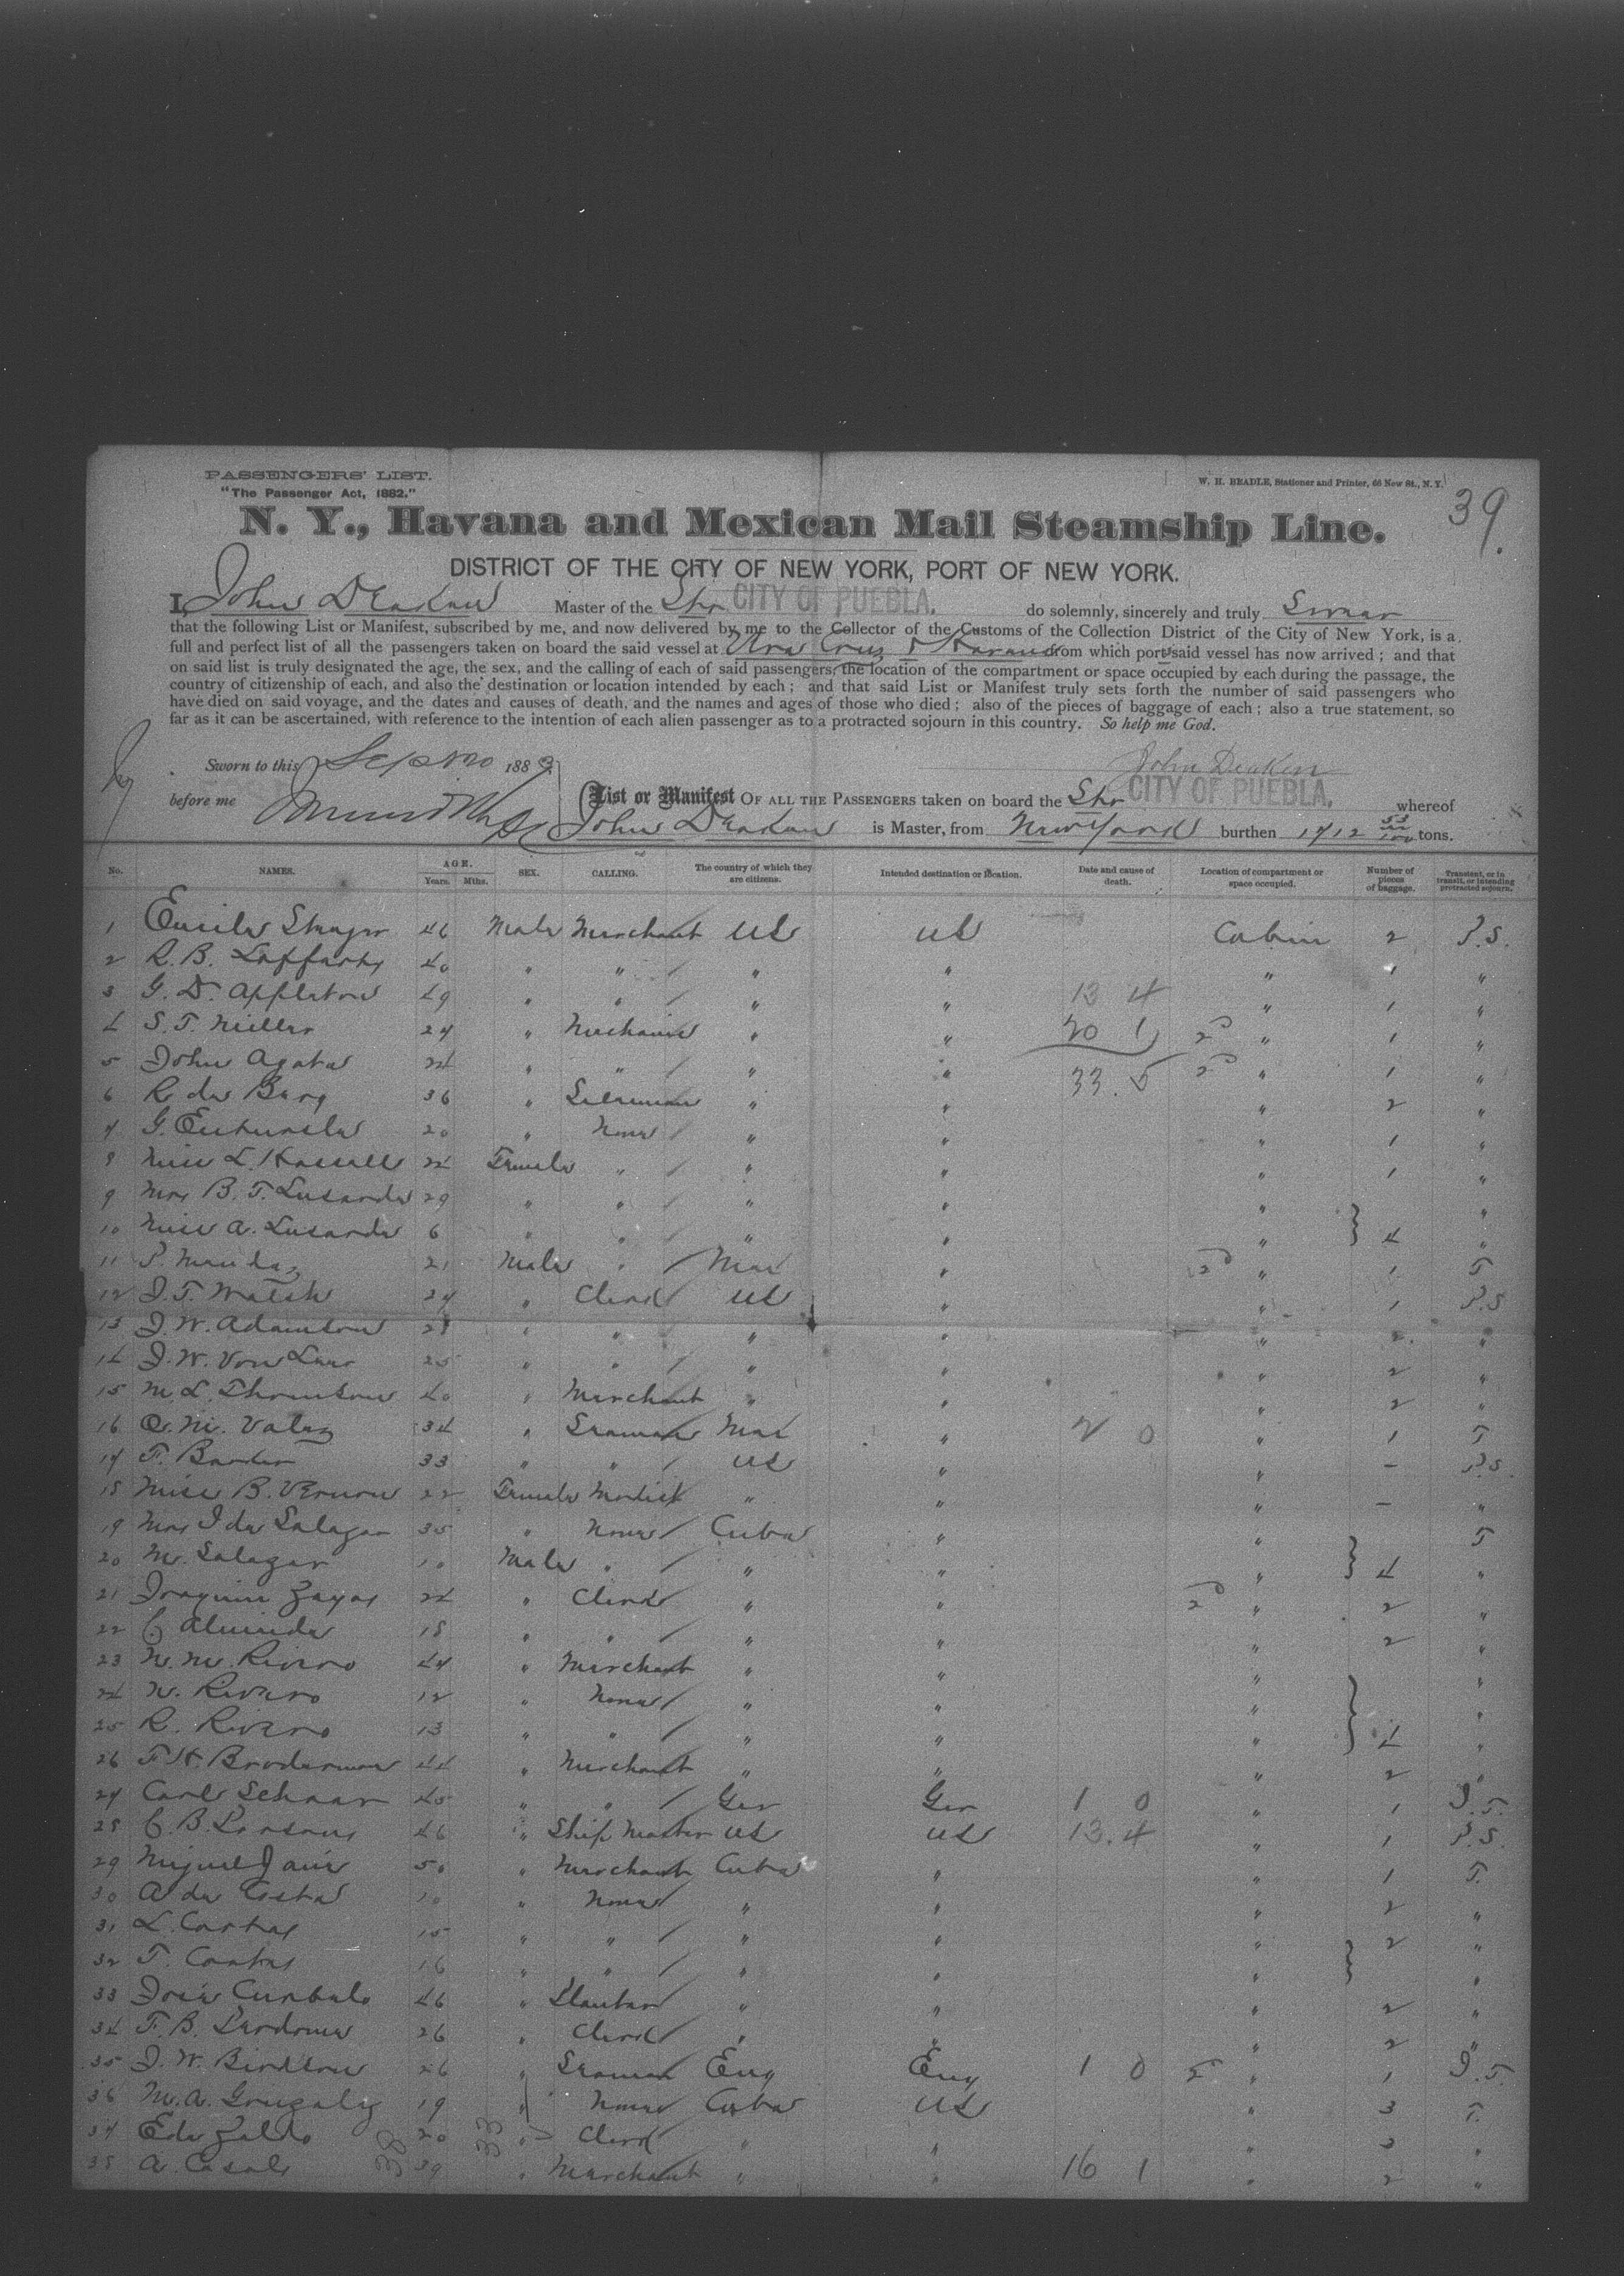 PASSENGERS' LIST.
"The Passenger Act, 1882."
W. H. BEADLE, Stationer and Printer, 66 New St., N. Y.
39.
N. Y., Havana and Mexican Mail Steamship Line.
DISTRICT OF THE CITY OF NEW YORK, PORT OF NEW YORK.
I, John Deaken Master of the Str CITY OF PUEBLA. do solemnly, sincerely and truly Swear
that the following List or Manifest, subscribed by me, and now delivered by me to the Collector of the Customs of the Collection District of the City of New York, is a
full and perfect list of all the passengers taken on board the said vessel at Vera Cruz & Havana from which ports said vessel has now arrived ; and that
on said list is truly designated the age, the sex, and the calling of each of said passengers, the location of the compartment or space occupied by each during the passage, the
country of citizenship of each, and also the destination or location intended by each ; and that said List or Manifest truly sets forth the number of said passengers who
have died on said voyage, and the dates and causes of death, and the names and ages of those who died ; also of the pieces of baggage of each ; also a true statement, so
far as it can be ascertained, with reference to the intention of each alien passenger as to a protracted sojourn in this country. So help me God.
Sworn to this Sep 1883
John Deaken
before me
List or Manifest OF ALL THE PASSENGERS taken on board the Str CITY OF PUEBLA. whereof
John Deaken is Master, from New York burthen 1712 53/100 tons.
No. NAMES. AGE. Years. Mths. SEX. CALLING. The country of which they are citizens. Intended destination or location. Date and cause of death. Location of compartment or space occupied. Number of pieces of baggage. Transient, or in transit, or intending protracted sojourn.
1 46 Male Merchant US US Cabin 2 P.S.
2 R. B. Lafferty 40 " " " " " 1 "
3 G. D. Appleton 49 " " " " 13 4 " 1 "
4 S. T. Miller 27 " Mechanic " " 20 1 2 " 1 "
5 John Agata 24 " " " " 33.5 2 " 1 "
6 R de Berg 36 " " " " 2 "
7 G. 20 " None " " " 1 "
8 Miss L. Hassell 24 Female " " " " 1 "
9 Mrs B. T. Lusarda 29 " " " " " "
10 Miss A. Lusarda 6 " " " " " 4 "
11 P. 21 Male " Mex " 2 " 1 T
12 J. T. Walsh 27 " Clerk US " " 1 P.S
13 J. W. Adamson 28 " " " " " 2 "
14 J. W. Von 25 " " " " " 2 "
15 M. L. Thomson 40 " Merchant " " " 2 "
16 34 " Seaman Mex " 2 0 " 1 T
17 F. 33 " " US " " - P.S.
18 Miss B. Vernon 22 Female Modist " " " - "
19 Mrs I de Salazar 35 " None Cuba " " T
20 M. Salazar 10 Male " " " " 4 "
21 Joaquin Zayas 24 " Clerk " " 2 " 2 "
22 C. Almeida 18 " " " " " 2 "
23 N. M. Rivero 47 " Merchant " " " "
24 N. Rivero 12 " None " " " "
25 R. Rivero 13 " " " " " 4 "
26 F. H. Broderman 44 " Merchant " " " 2 "
27 Carl Schaar 45 " " Ger Ger 1 0 " 1 I.T.
28 C. B. Parsons 46 " Ship Master US US 13.4 " 1 P.S.
29 Miguel 50 " Merchant Cuba " " 1 T.
30 A de Costa 10 " None " " " 2 "
31 L. 15 " " " " " 2 "
32 T. 16 " " " " " "
33 José 46 " Planter " " " 2 "
34 F. B. Perdomo 26 " Clerk " " " 2 "
35 J. W. 26 " Seaman Eng Eng 1 0 2 " 1 I.T.
36 M. A. Gonzalez 19 " None Cuba US " 3 T.
37 Ed. Zaldo 20 33 " Clerk " " " 3 "
38 A. Casals 38 39 " Merchant " " 16 1 " 2 "